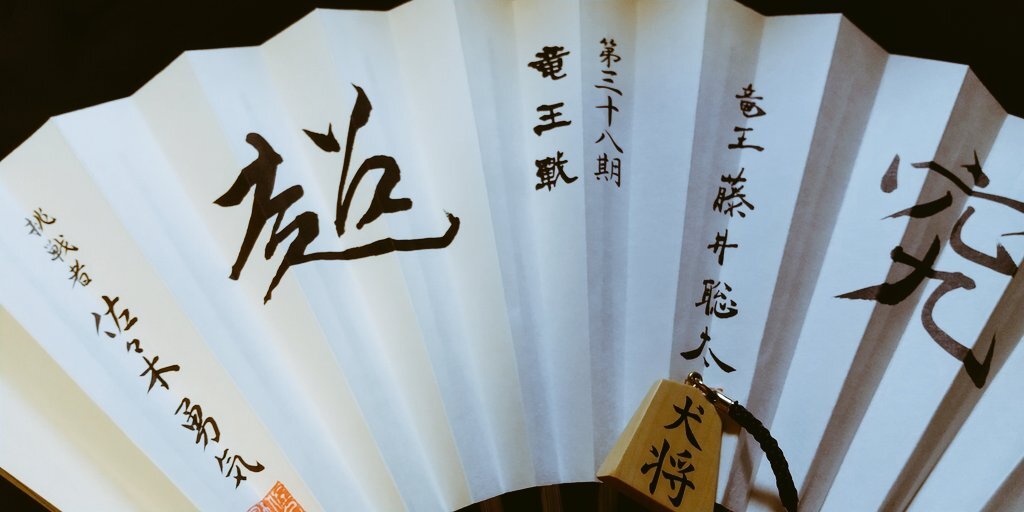 究
竜王 藤井聡太
第三十八期
竜王戦
超
挑戦者 佐々木勇気
犬将